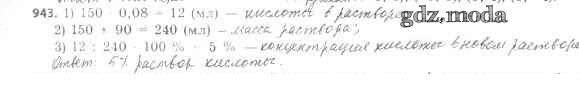 943. 1) 150 · 0,08 = 12 (мл) – кислоты в растворе gdz.moda
2) 150 + 90 = 240 (мл) – масса раствора;
3) 12 : 240 · 100 % = 5 % – концентрация кислоты в новом растворе
Ответ: 5% раствор кислоты.